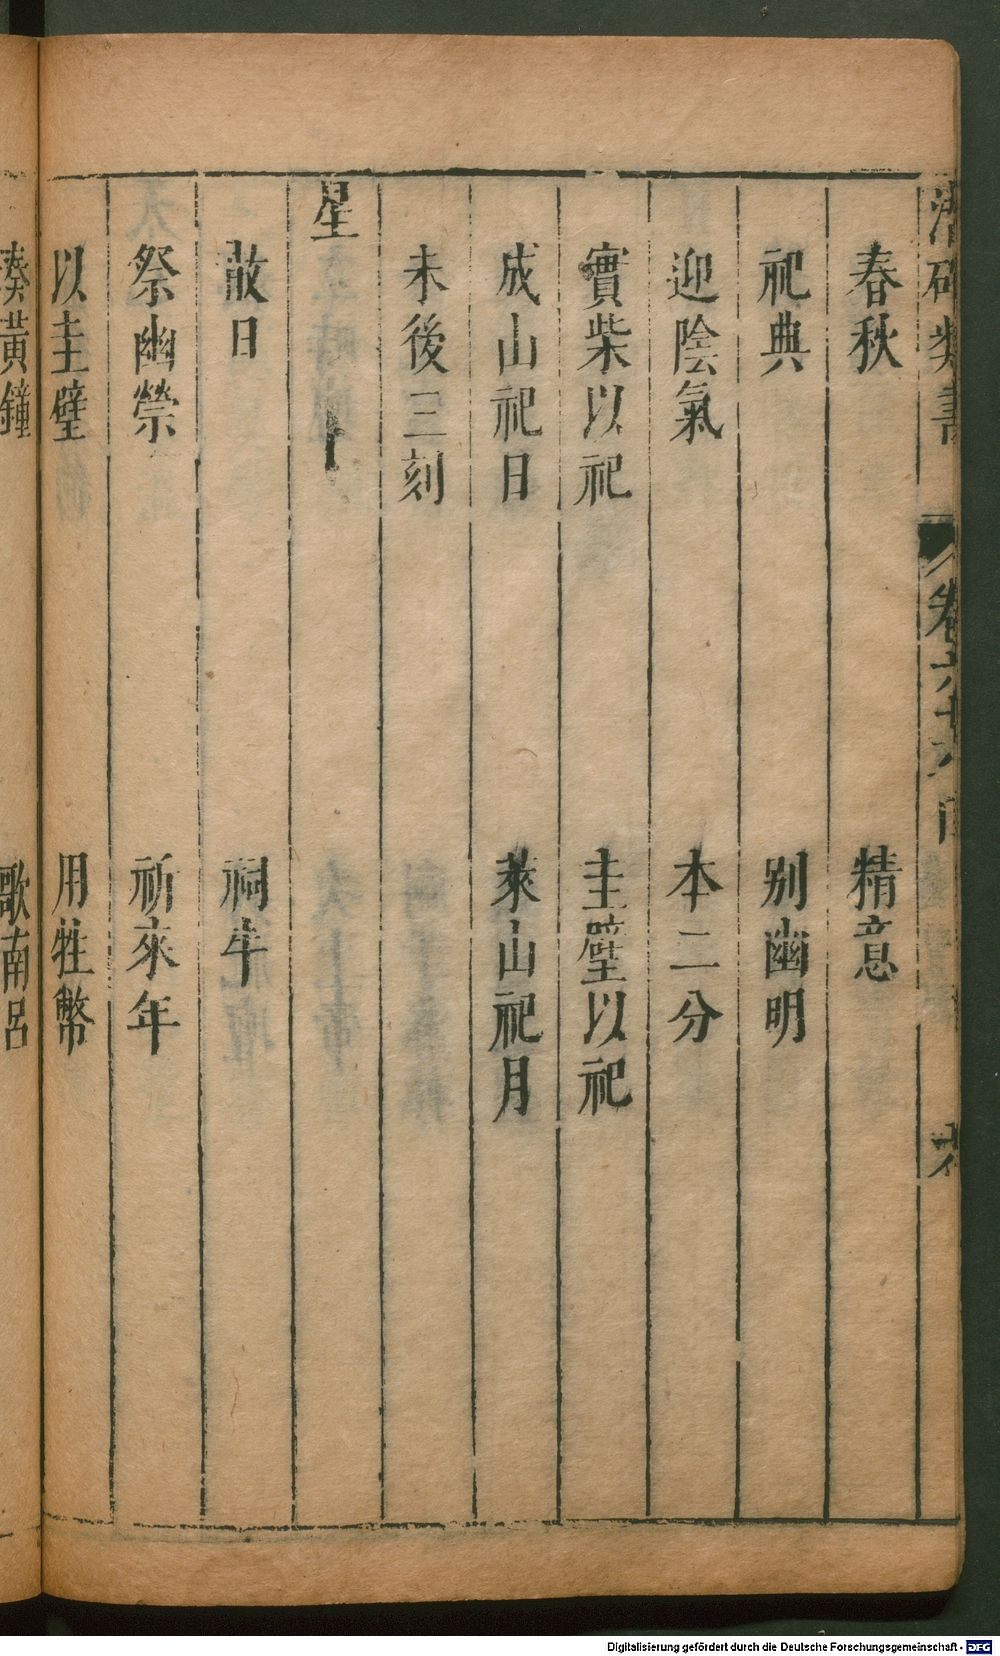 潛確類書 卷六十六
春秋 精意
祀典 别幽明
迎陰氣 本二分
實柴以祀 圭璧以祀
成山祀日 萊山祀月
未後三刻
星
散日 祠牛
祭幽禜 祈來年
以圭璧 用牲幣
湊黃鐘 歌南呂
Digitalisierung gefördert durch die Deutsche Forschungsgemeinschaft - DFG